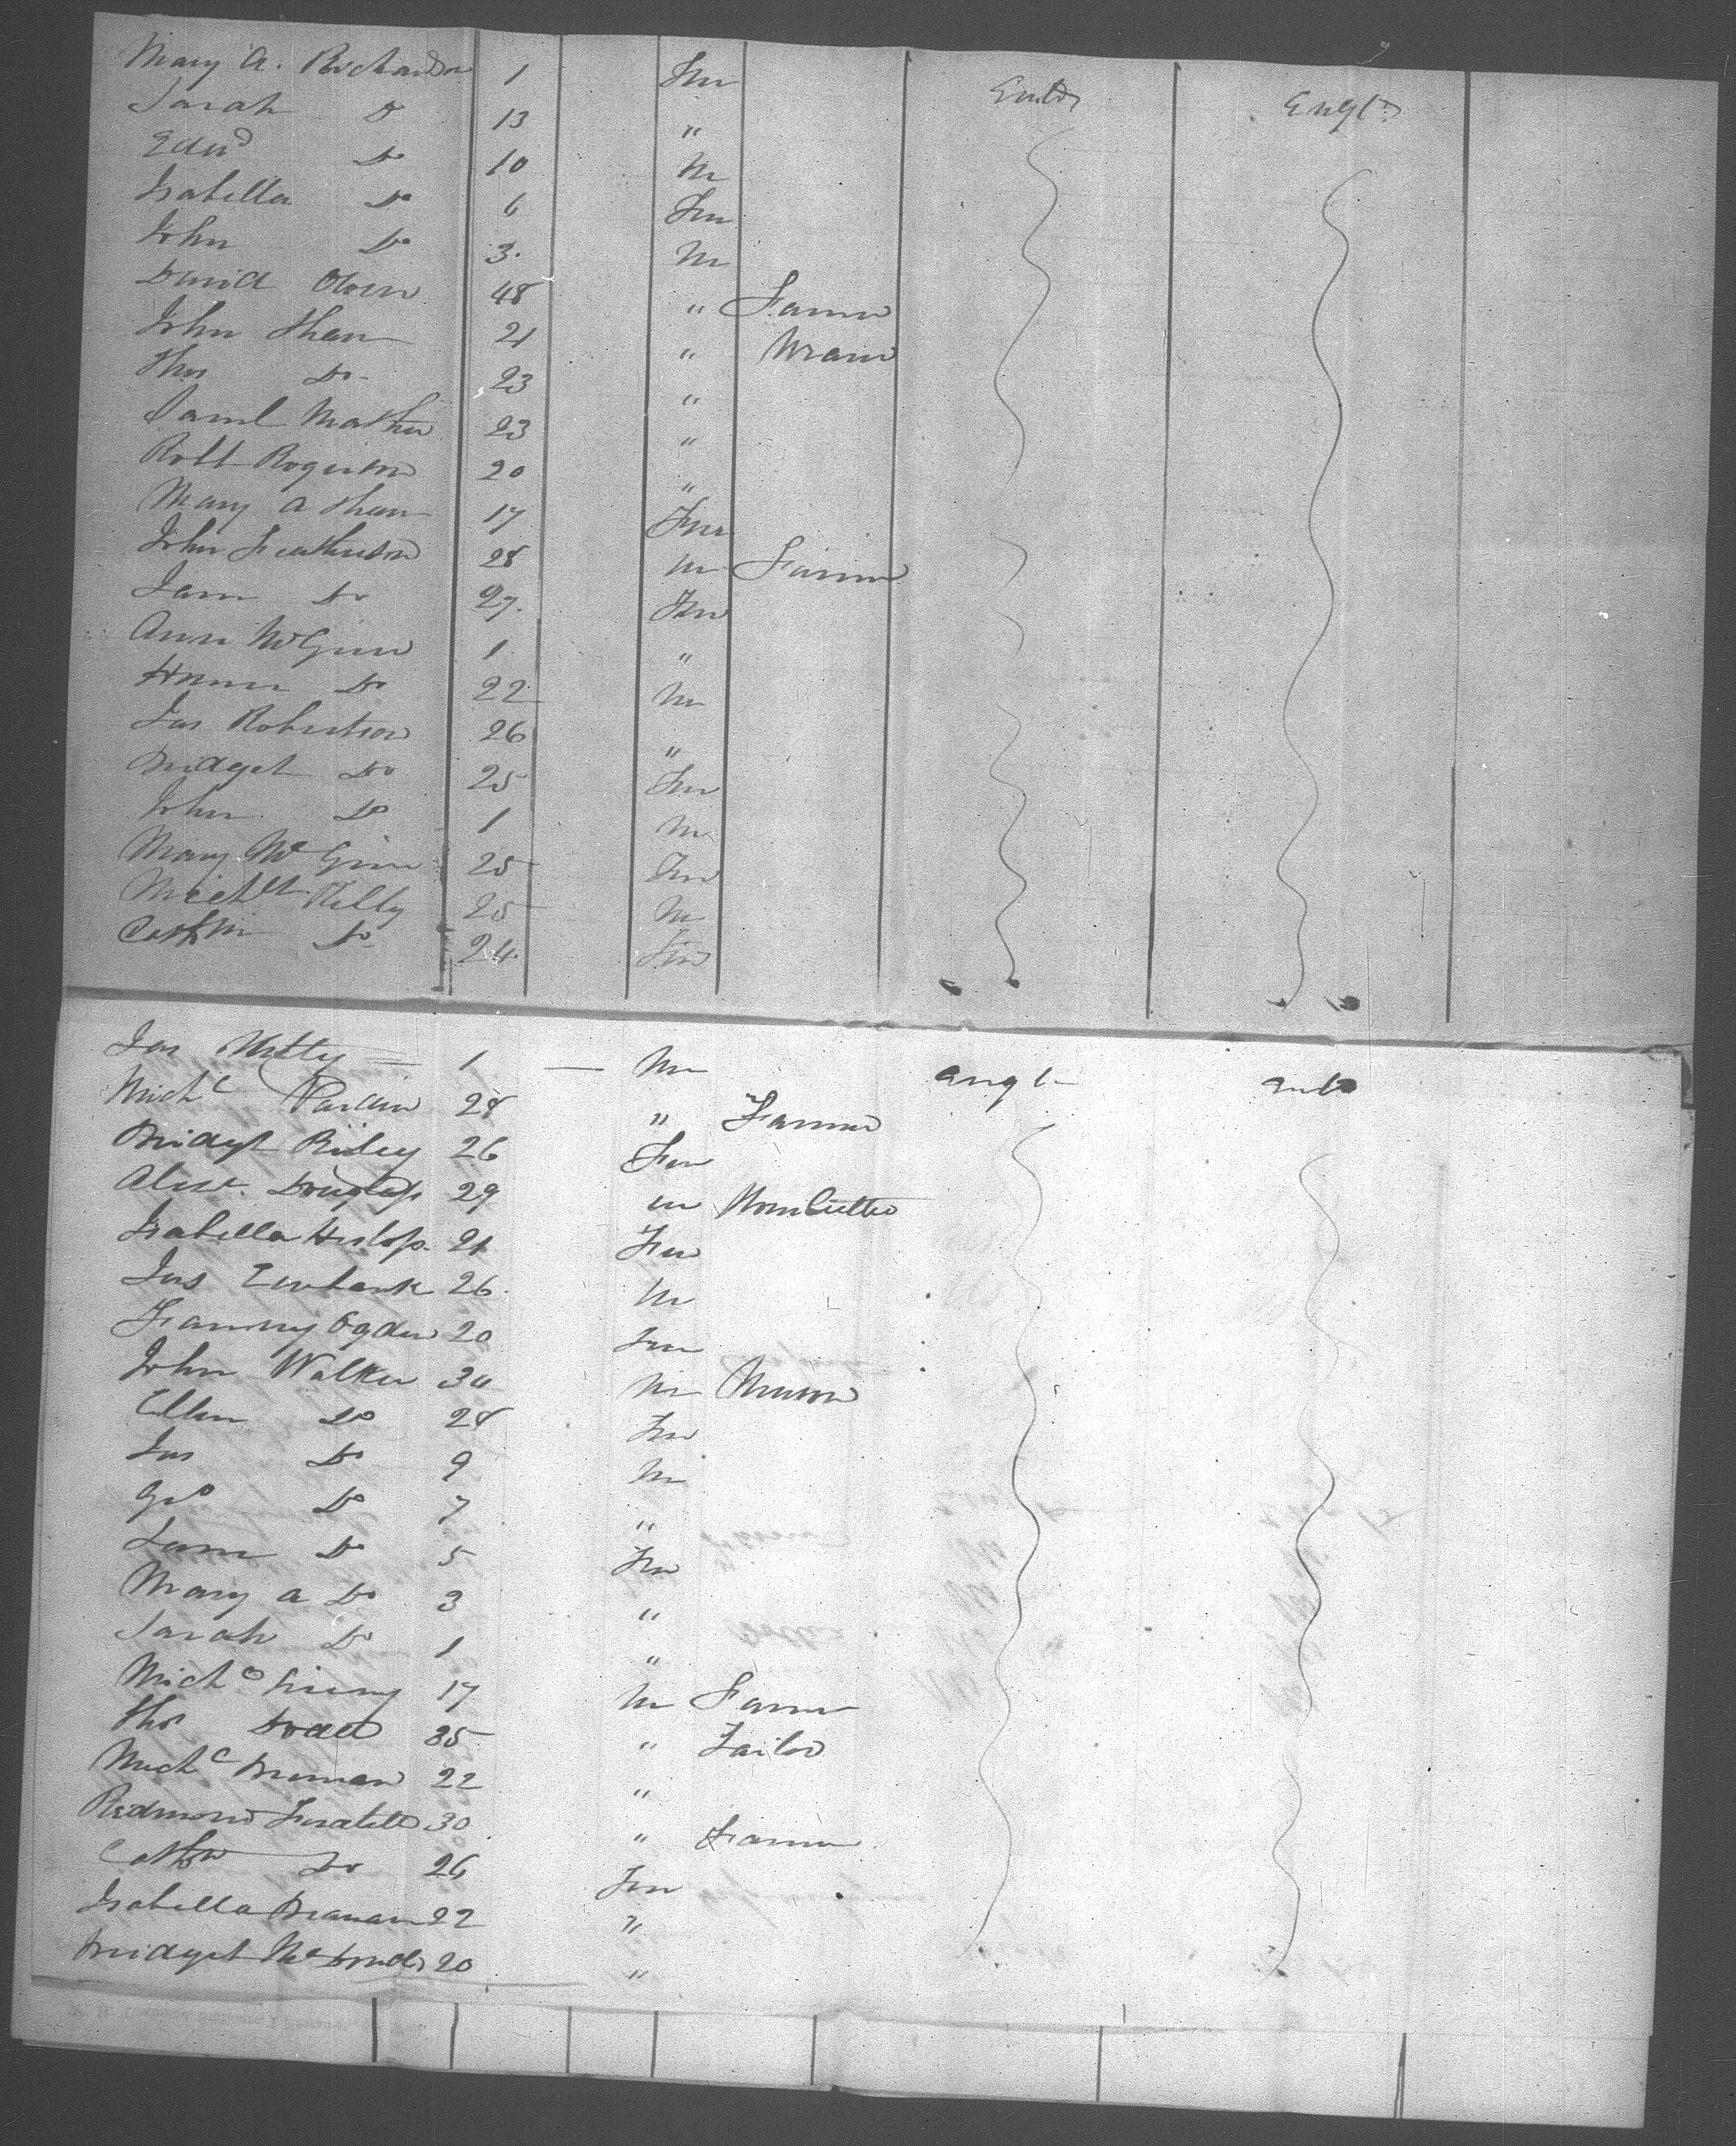 Mary A. Richardson 1 Fm Engld Engld
Sarah Do 13 "
Edwd Do 10 M
Isabella Do 6 Fm
John Do 3 M
David Owen 48 " Farmer
John Shaw 21 " Weaver
Thos Do 23 "
Saml Mather 23 "
Robt Rogerson 20 "
Mary A Shaw 17 Fm
John Featherston 28 M Farmer
Jane Do 27 Fm
Ann McGinn 1 "
Do 22 M
Jas Robertson 26 "
Bridget Do 25 Fm
John Do 1 M
Mary McGinn 25 Fm
Michl Kelly 25 M
Cathn Do 24 Fm
Jas 1 M Engld
Michl 28 " Farmer
Bridget Riley 26 Fm
Alexr. Douglass 29 M
Isabella Heslop 21 Fm
Jas Ewbank 26 M
Fanny Ogden 20 Fm
John Walker 30 M Mason
Ellen Do 28 Fm
Jas Do 9 M
Geo Do 7 "
Jane Do 5 Fm
Mary A Do 3 "
Sarah Do 1 "
Michl 17 M Farmer
Thos 35 " Tailor
Michl 22 "
Redmond 30 " Farmer
Cathn Do 26 Fm
Isabella 22 "
Bridget 20 "